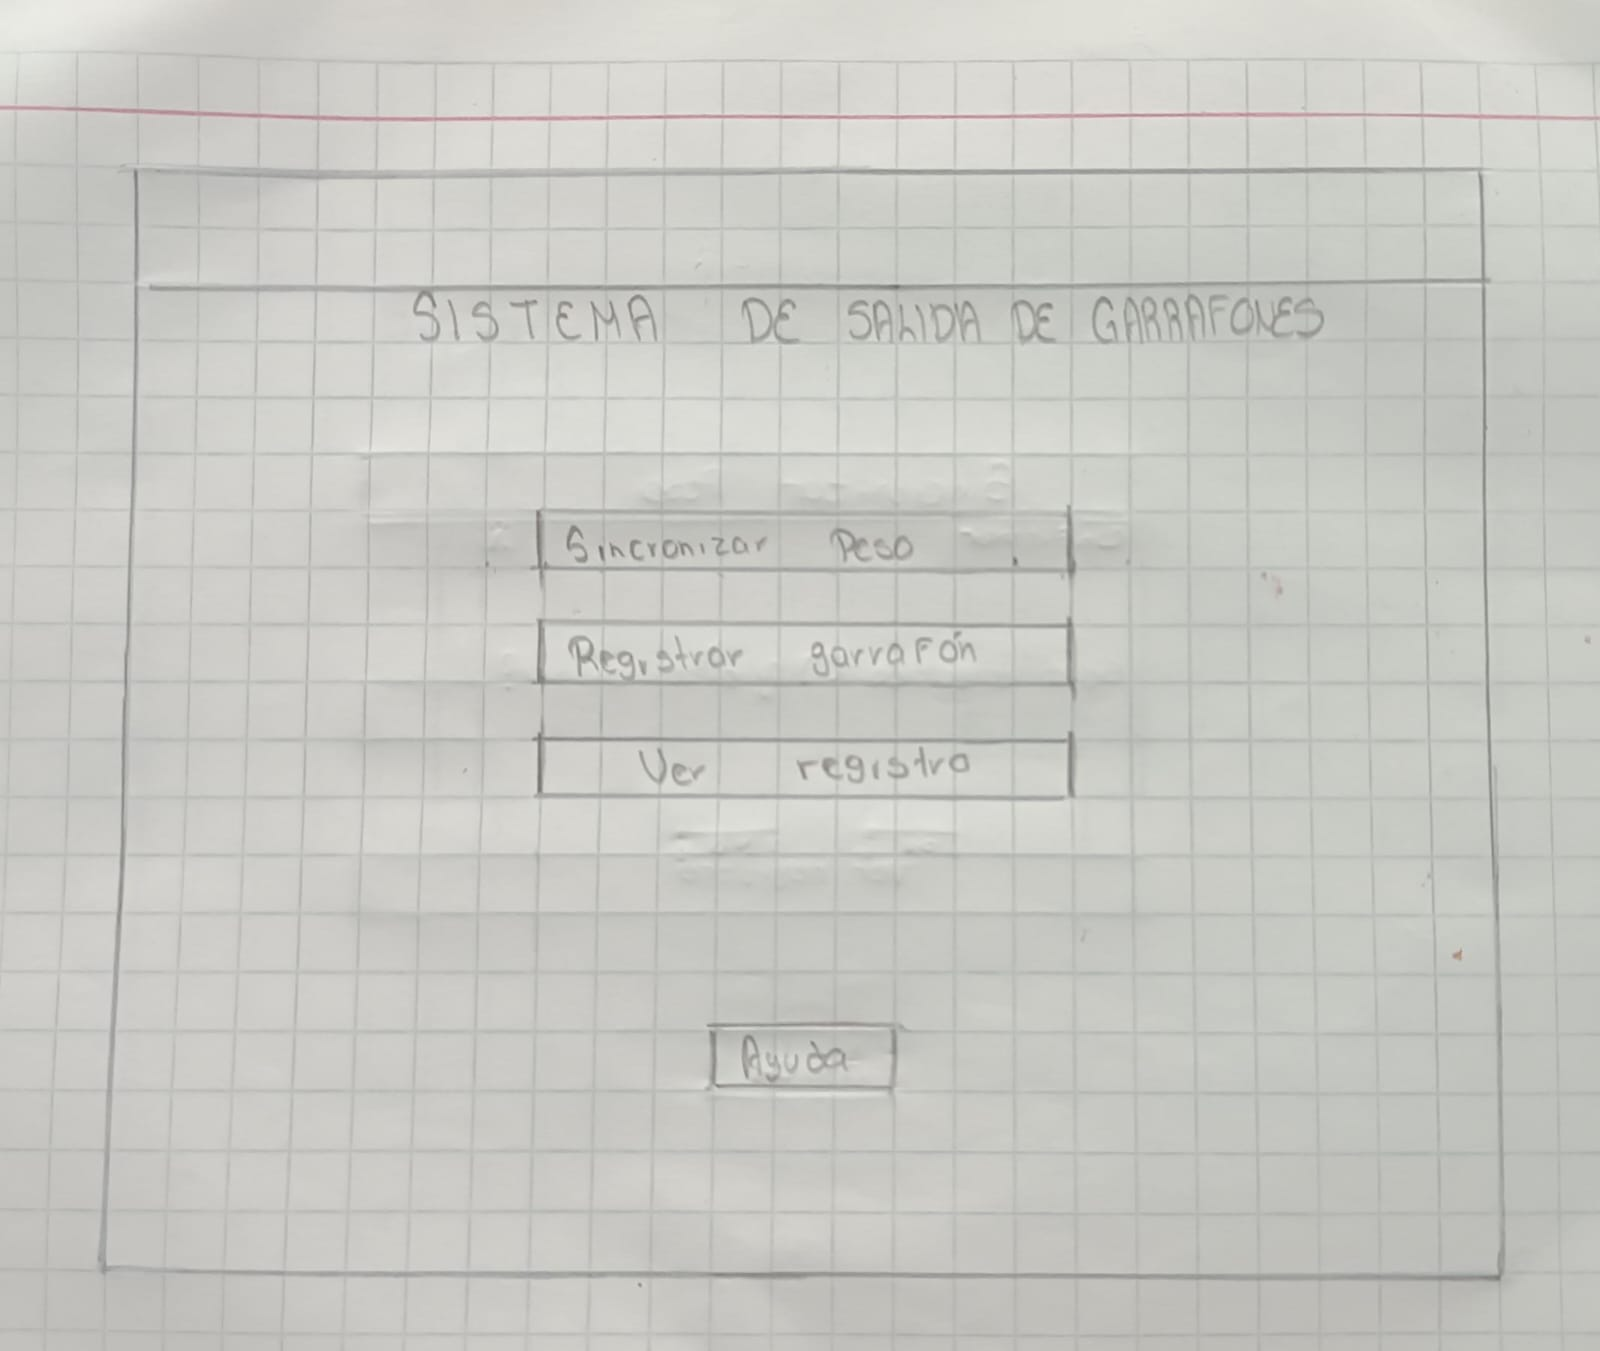 SISTEMA DE SALIDA DE GARRAFONES
Sincronizar Peso
Registrar garrafón
Ver registro
Ayuda